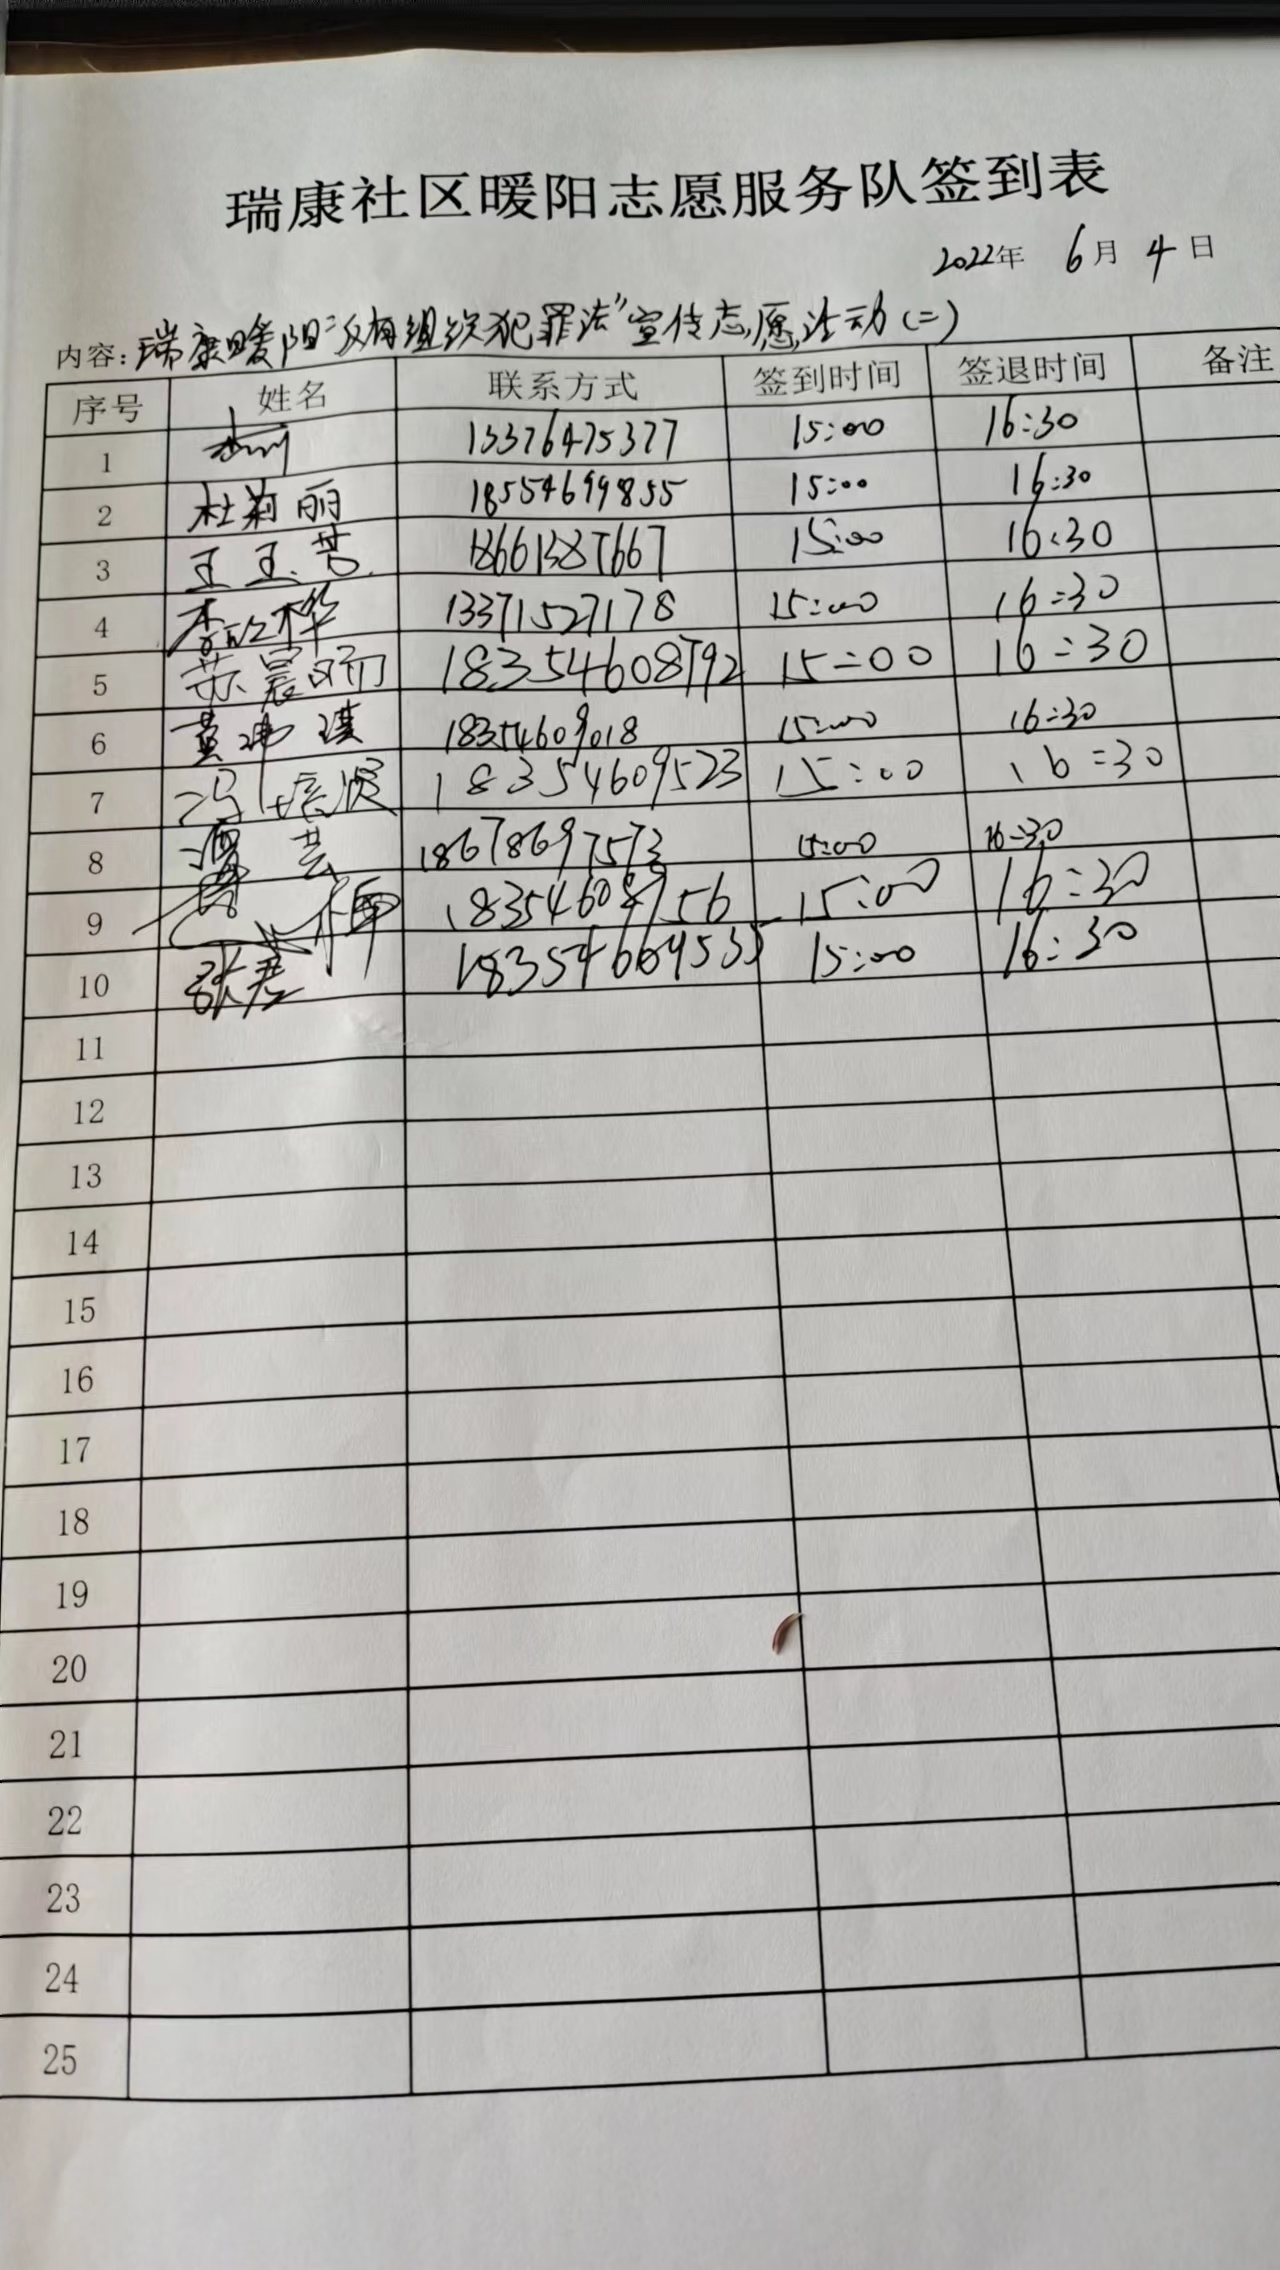 瑞康社区暖阳志愿服务队签到表
2022年 6月 4日
内容: 瑞康暖阳“反有组织犯罪法”宣传志愿活动(二)
序号 姓名 联系方式 签到时间 签退时间 备注
1 15376475377 15:00 16:30
2 杜莉丽 18554699855 15:00 16:30
3 王玉 18661387667 15:00 16:30
4 李 13371527178 15:00 16:30
5 苏晨 18354608792 15:00 16:30
6 黄 琪 18354609018 15:00 16:30
7 冯 18354609523 15:00 16:30
8 芸 18678697573 15:00 16:30
9 15:00 16:30
10 张 15:00 16:30
11
12
13
14
15
16
17
18
19
20
21
22
23
24
25